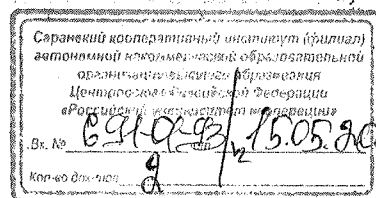 Саранский кооперативный институт (филиал)
автономной некоммерческой образовательной
организации высшего образования
Центросоюза Российской Федерации
«Российский университет кооперации»
Вх. № 15.05.20
Кол-во 2